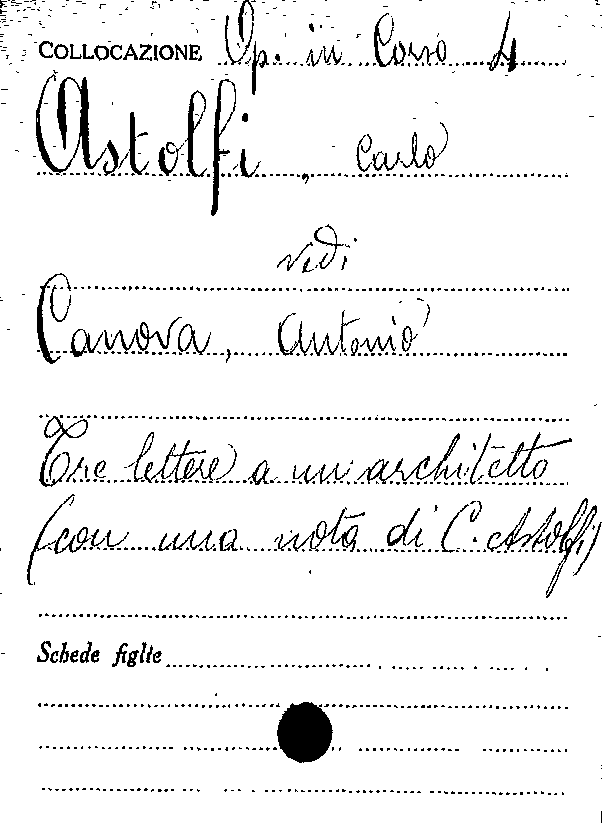 COLLOCAZIONE Op. in Corso 4
Astolfi, Carlo
vedi
Canova, Antonio
Tre lettere a un architetto
(con una nota di C. Astolfi)
Schede figlie